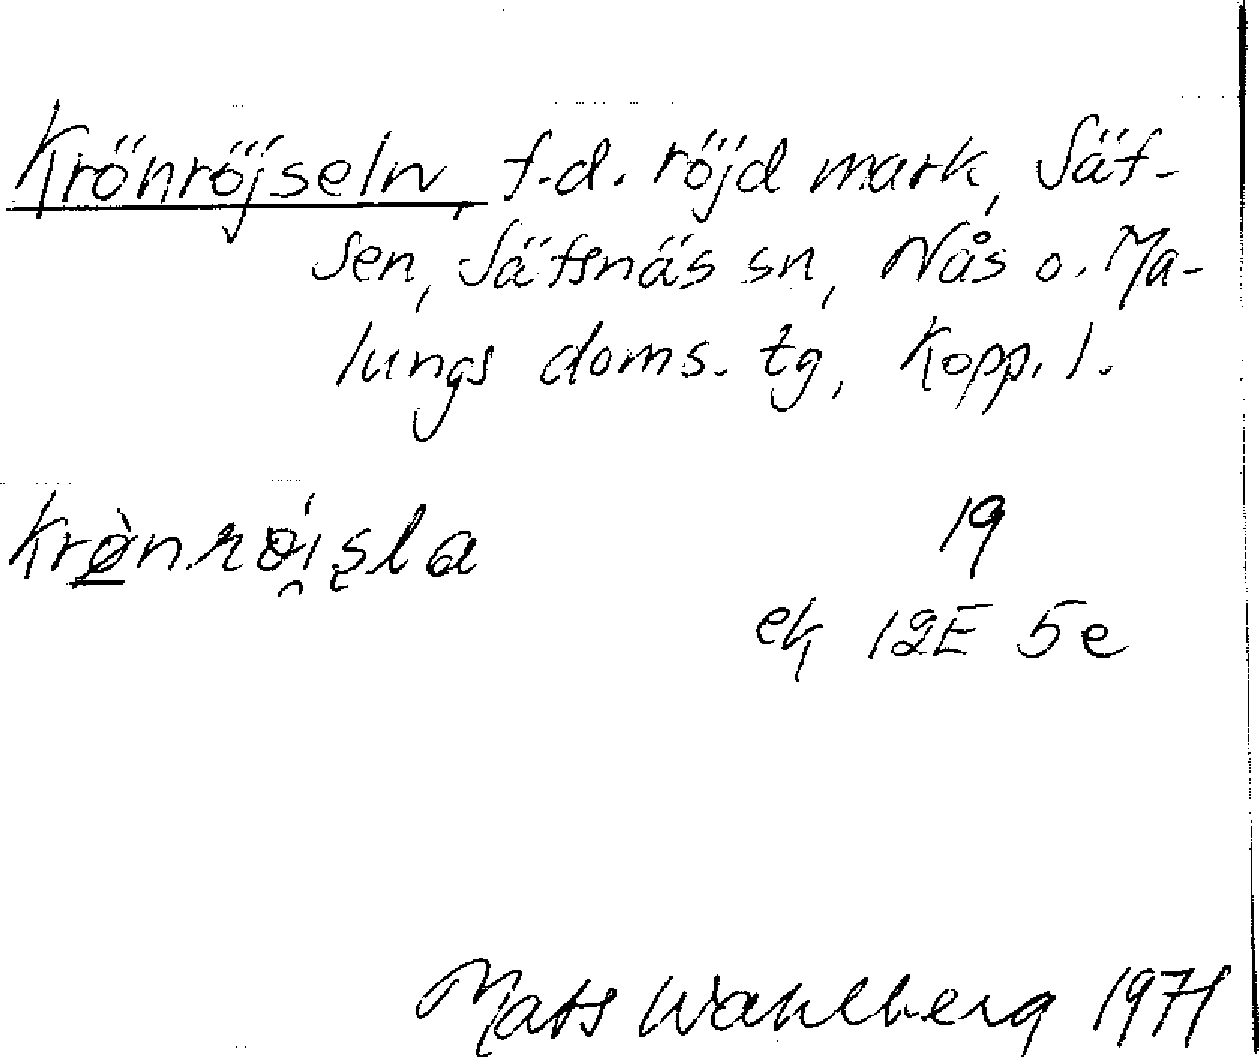 Krönröjseln, f.d. röjd mark, Säf-
sen, Säfsnäs sn, Nås o. Ma-
lungs doms. tg, Kopp. l.
19
ek 12E 5e
Mats Wahlberg 1971